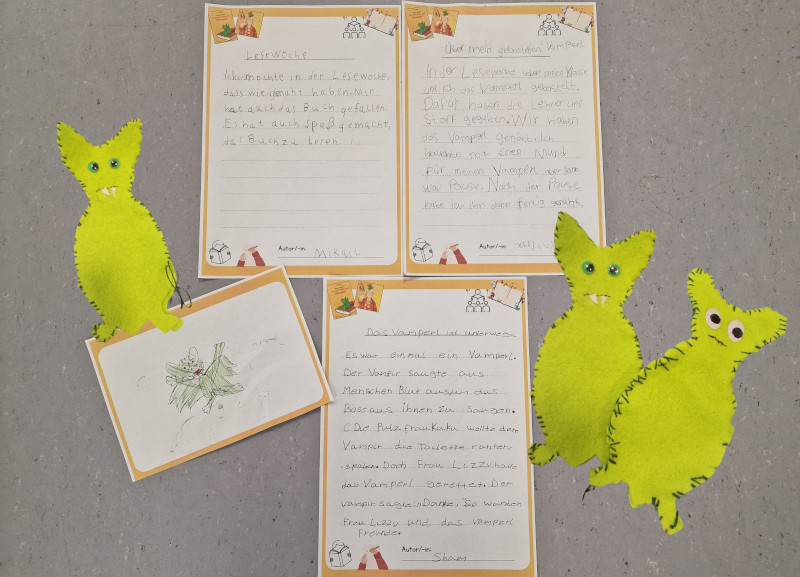 Lesewoche
Ich möchte in der Lesewoche,
dass wir genäht haben. Mir
hat auch das Buch gefallen.
Es hat auch Spaß gemacht,
das Buch zu lesen.
Autor/-in:
Mikail
Über mein gebastelten Vamperl
In der Lesewoche haben meine Klasse
und ich das Vamperl gebastelt.
Dafür haben die Lehrer uns
Stoff gegeben. Wir haben
das Vamperl genäht. Ich
brauchte nur einen Mund
für meinen Vamperl, aber dann
war Pause. Nach der Pause
habe ich ihn dann fertig genäht.
Autor/-in:
Das Vamperl ist unterwegs
Es war einmal ein Vamperl.
Der Vanpir saugte aus
Menschen Blut aus um das
Böse aus ihnen zu saugen.
Die Putzfrau Kuku wollte den
Vampir die Toilette runter
spülen. Doch Frau Lizzy hatte
das Vamperl gerettet. Der
vampir sagte: „Danke," So wurden
Frau Lizzy und das Vamperl
Freunde.
Autor/-in:
Sham